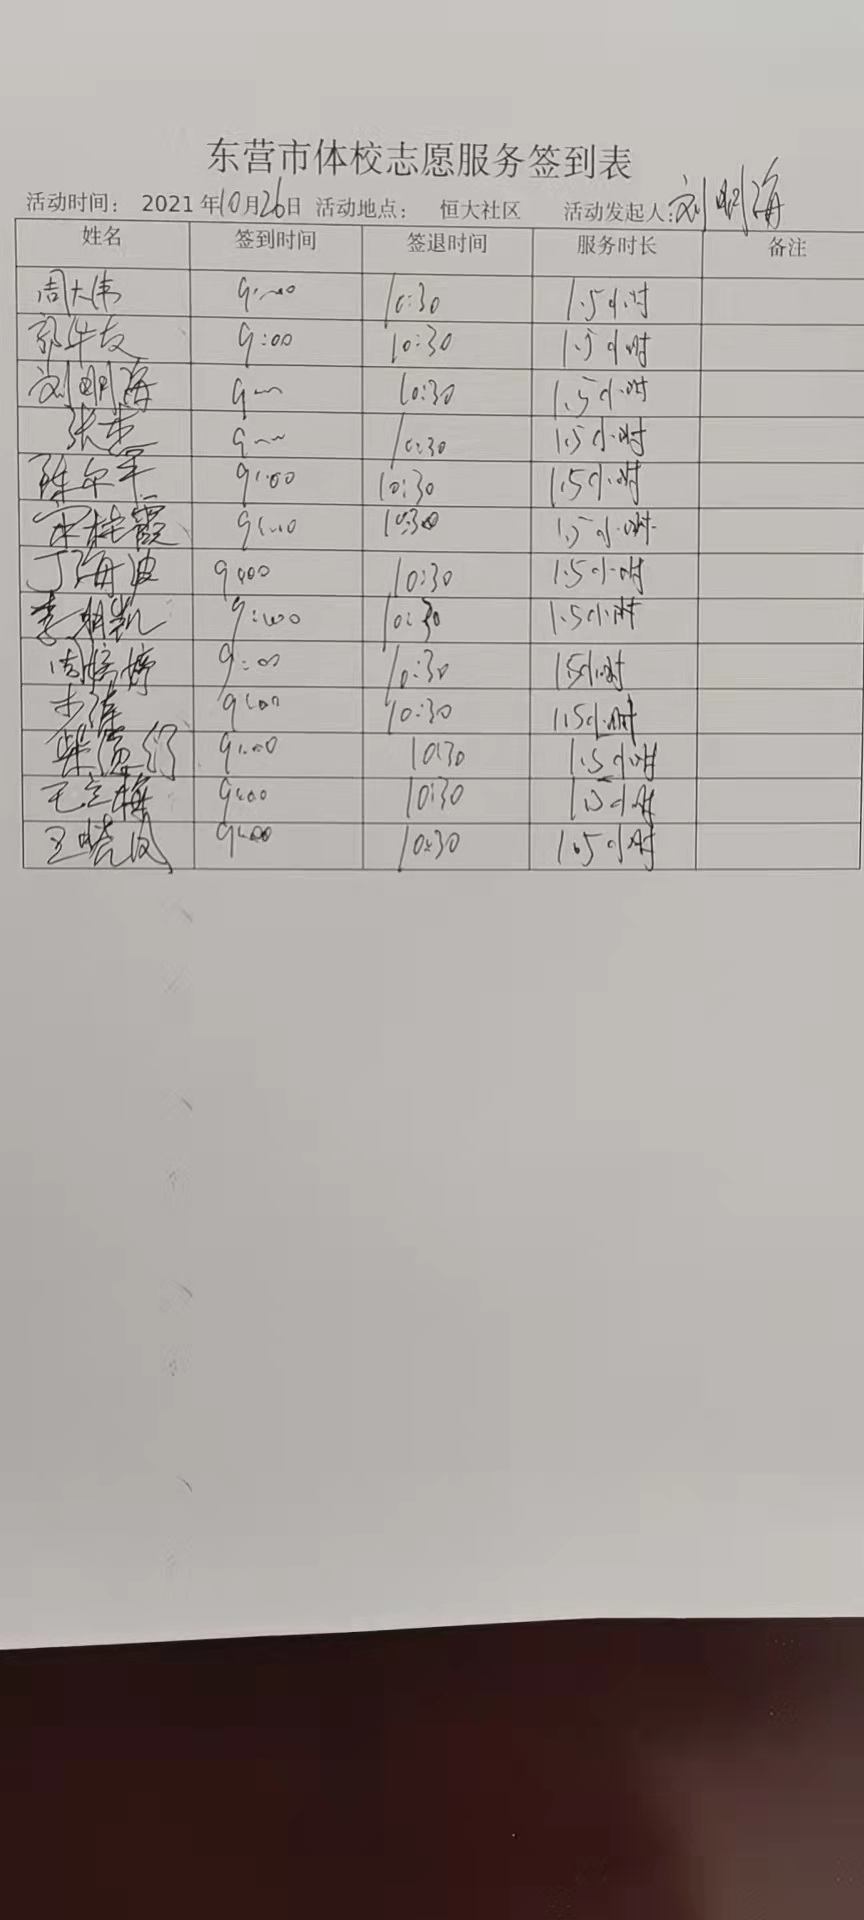 东营市体校志愿服务签到表
活动时间： 2021年10月26日 活动地点： 恒大社区 活动发起人：刘明海
姓名 签到时间 签退时间 服务时长 备注
周大伟 9:00 10:30 1.5小时
9:00 10:30 1.5小时
刘明海 9:00 10:30 1.5小时
张杰 9:00 10:30 1.5小时
9:00 10:30 1.5小时
宋桂霞 9:00 10:30 1.5小时
丁海波 9:00 10:30 1.5小时
李朝凯 9:00 10:30 1.5小时
周婷婷 9:00 10:30 1.5小时
9:00 10:30 1.5小时
9:00 10:30 1.5小时
王立梅 9:00 10:30 1.5小时
王晓凤 9:00 10:30 1.5小时